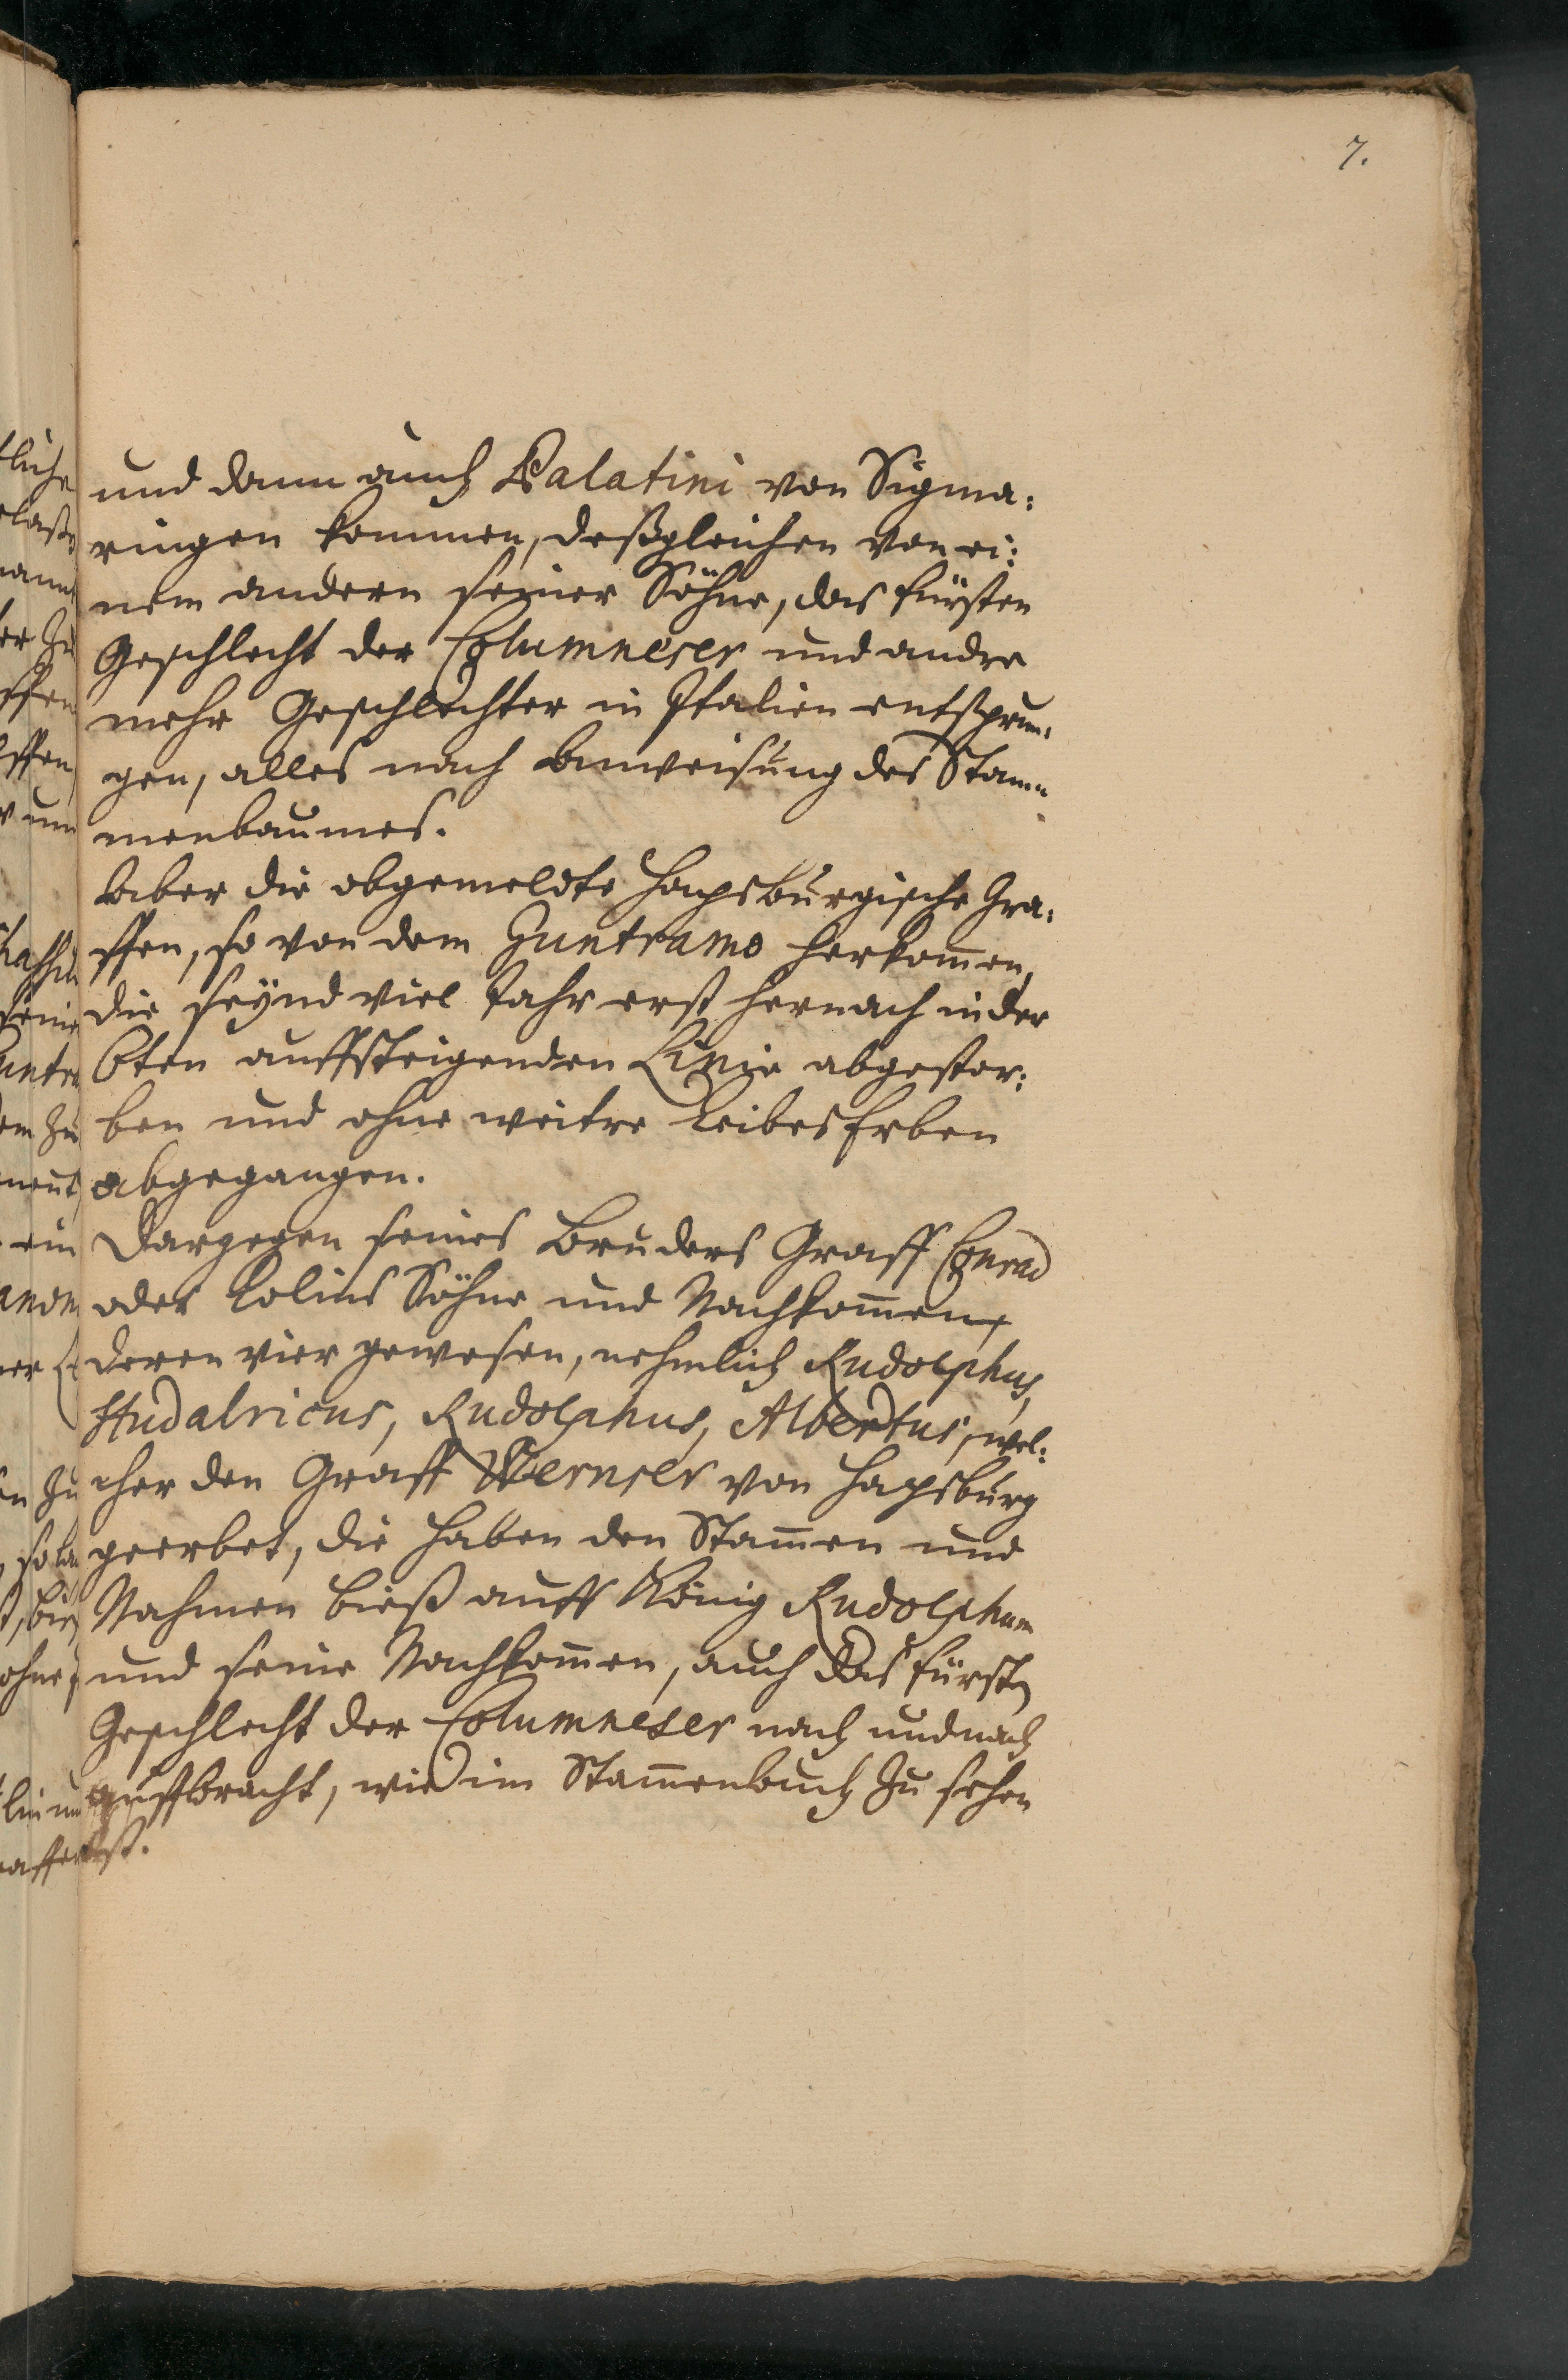 7.
und dann auch Palatini von Sigma:
ringen kommen, deßgleichen von ei:
nem andern seiner Söhne, das fürsten
Geschlecht der Columneser und andre
mehr Geschlechter in Italien entsprun:
gen, alles nach Anweisung des Stam=
menbaumes.
Aber die obgemeldte Hapsburgische Gra:
ffen, so von dem Guntramo herkom̄en,
die seÿnd viel Jahr erst hernach in der
6ten auffsteigenden Linie abgestor:
ben und ohne weitre Leibes Erben
abgegangen.
Dargegen seines Bruders Graff Conrad
oder Kolins Söhne und Nachkom̄en,
deren vier gewesen, nehmlich Rudolphus,
Hudalricus, Rudolphus, Albertus, wel:
cher den Graff Wernser von Hapsburg
geerbet, die haben den Stam̄en und
Nahmen bieß auff König Rudolphum
und seine Nachkom̄en, auch das fürstn
Geschlecht der Columneser nach und nach
auffbracht, wie im Stam̄enbuch zu sehen
ist.